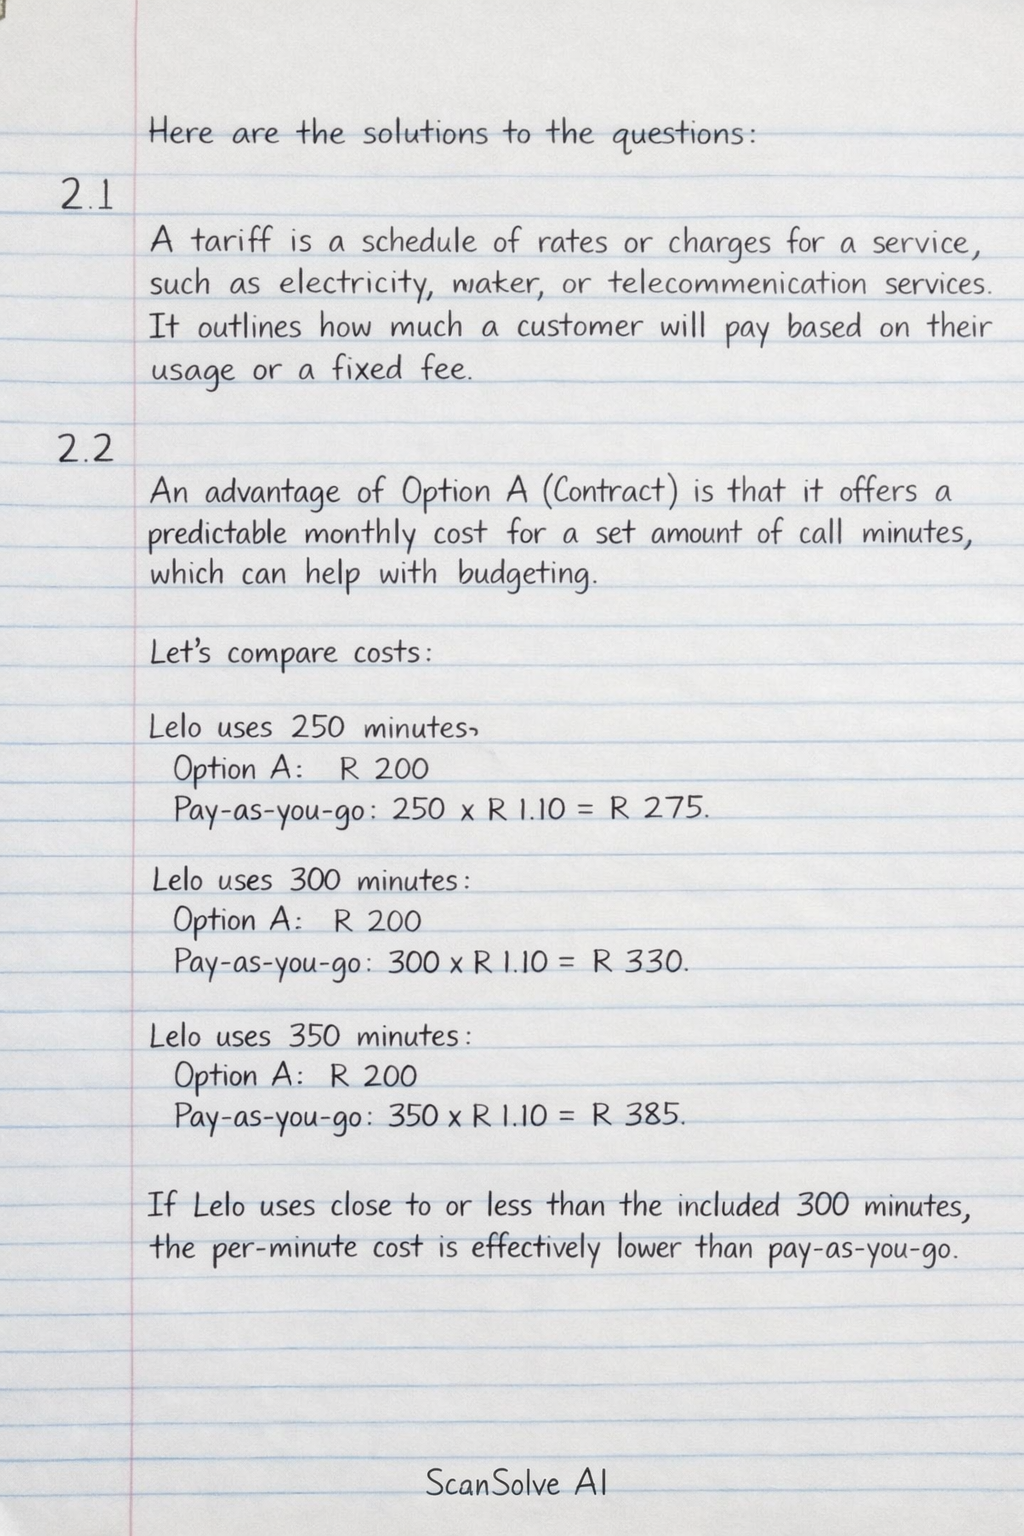 Here are the solutions to the questions:
2.1
A tariff is a schedule of rates or charges for a service,
such as electricity, waker, or telecommenication services.
It outlines how much a customer will pay based on their
usage or a fixed fee.
2.2
An advantage of Option A (Contract) is that it offers a
predictable monthly cost for a set amount of call minutes,
which can help with budgeting.
Let's compare costs:
Lelo uses 250 minutes,
Option A: R 200
Pay-as-you-go: 250 x R 1.10 = R 275.
Lelo uses 300 minutes:
Option A: R 200
Pay-as-you-go: 300 x R 1.10 = R 330.
Lelo uses 350 minutes:
Option A: R 200
Pay-as-you-go: 350 x R 1.10 = R 385.
If Lelo uses close to or less than the included 300 minutes,
the per-minute cost is effectively lower than pay-as-you-go.
ScanSolve AI